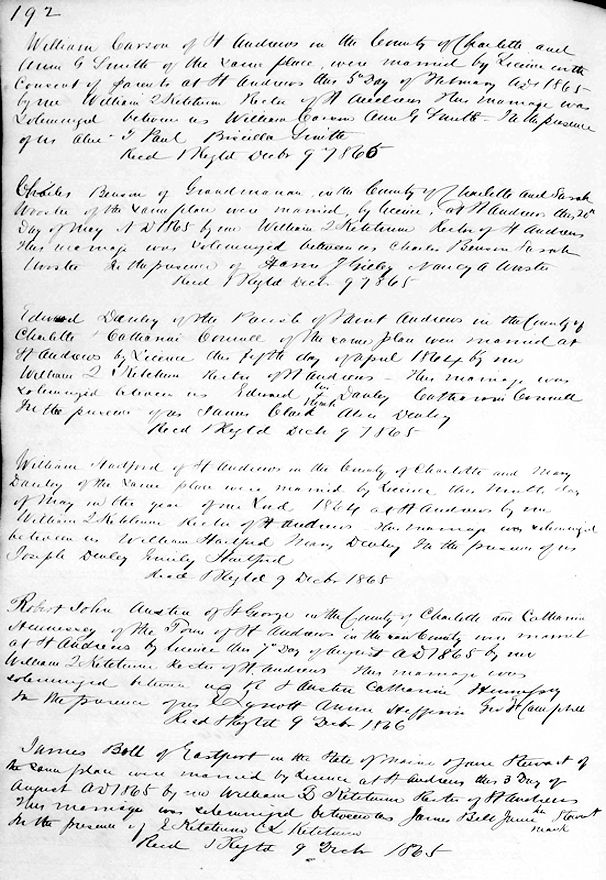 192
William Carson of St Andrews in the County of Charlotte and
Ann G Smith of the same place, were married by Licence with
Consent of parents at St Andrews this 5th Day of February AD 1865
by me William Q Ketchum Rector of St Andrews This marriage was
solemnized between us William Carson Ann G Smith - In the presence
of us Paul Priscilla Smith
Recd & Regtd Decbr 9th 1865
Charles Benson of Grandmanan in the County of Charlotte and Sarah
Wooster of the same place were married, by licence, at St Andrews this 20th
Day of May AD 1865 by me William Q Ketchum Rector of St Andrews
This marriage was solemnized between us Charles Benson Sarah
Wooster In the presence of Nancy A Wooster
Recd & Regtd Decbr 9th 1865
Edward Danley of the Parish of Saint Andrews in the County of
Charlotte & Catharine Connell of the same place were married at
St Andrews by Licence this fifth day of April 1864 by me
William Q Ketchum Rector of St Andrews - This marriage was
solemnized between us Edward his mark Danley Catharine Connell
In the presence of us James Clark Alice Danley
Recd & Regtd Decbr 9th 1865
William Hartford of St Andrews in the County of Charlotte and Mary
Danley of the same place were married by Licence this Ninth day
of May in the year of our Lord 1864 at St Andrews by me
William Q Ketchum Rector of St Andrews This marriage was solemnized
between us William Hartford Mary Danley In the presence of us
Joseph Danley Emily Hartford
Recd & Regtd 9 Decbr 1865
Robert John Austin of St George in the County of Charlotte and Catharine
Hennessy of the Town of St Andrews in the same County were married
at St Andrews by licence this 7th Day of August AD 1865 by me
William Q Ketchum Rector of St Andrews This marriage was
solemnized between us R J Austin Catharine Hennessy
In the presence of us Lynott Annie Heffron Geo H Campbell
Recd & Regtd 9 Decbr 1865
James Bell of Eastport in the State of Maine & Jane Stewart of
the same place were married by Licence at St Andrews this 3 Day of
August AD 1865 by me William Q Ketchum Rector of St Andrews
This marriage was solemnized between us James Bell Jane her mark Stewart
In the presence of Ketchum C L Ketchum
Recd & Regtd 9 Decbr 1865